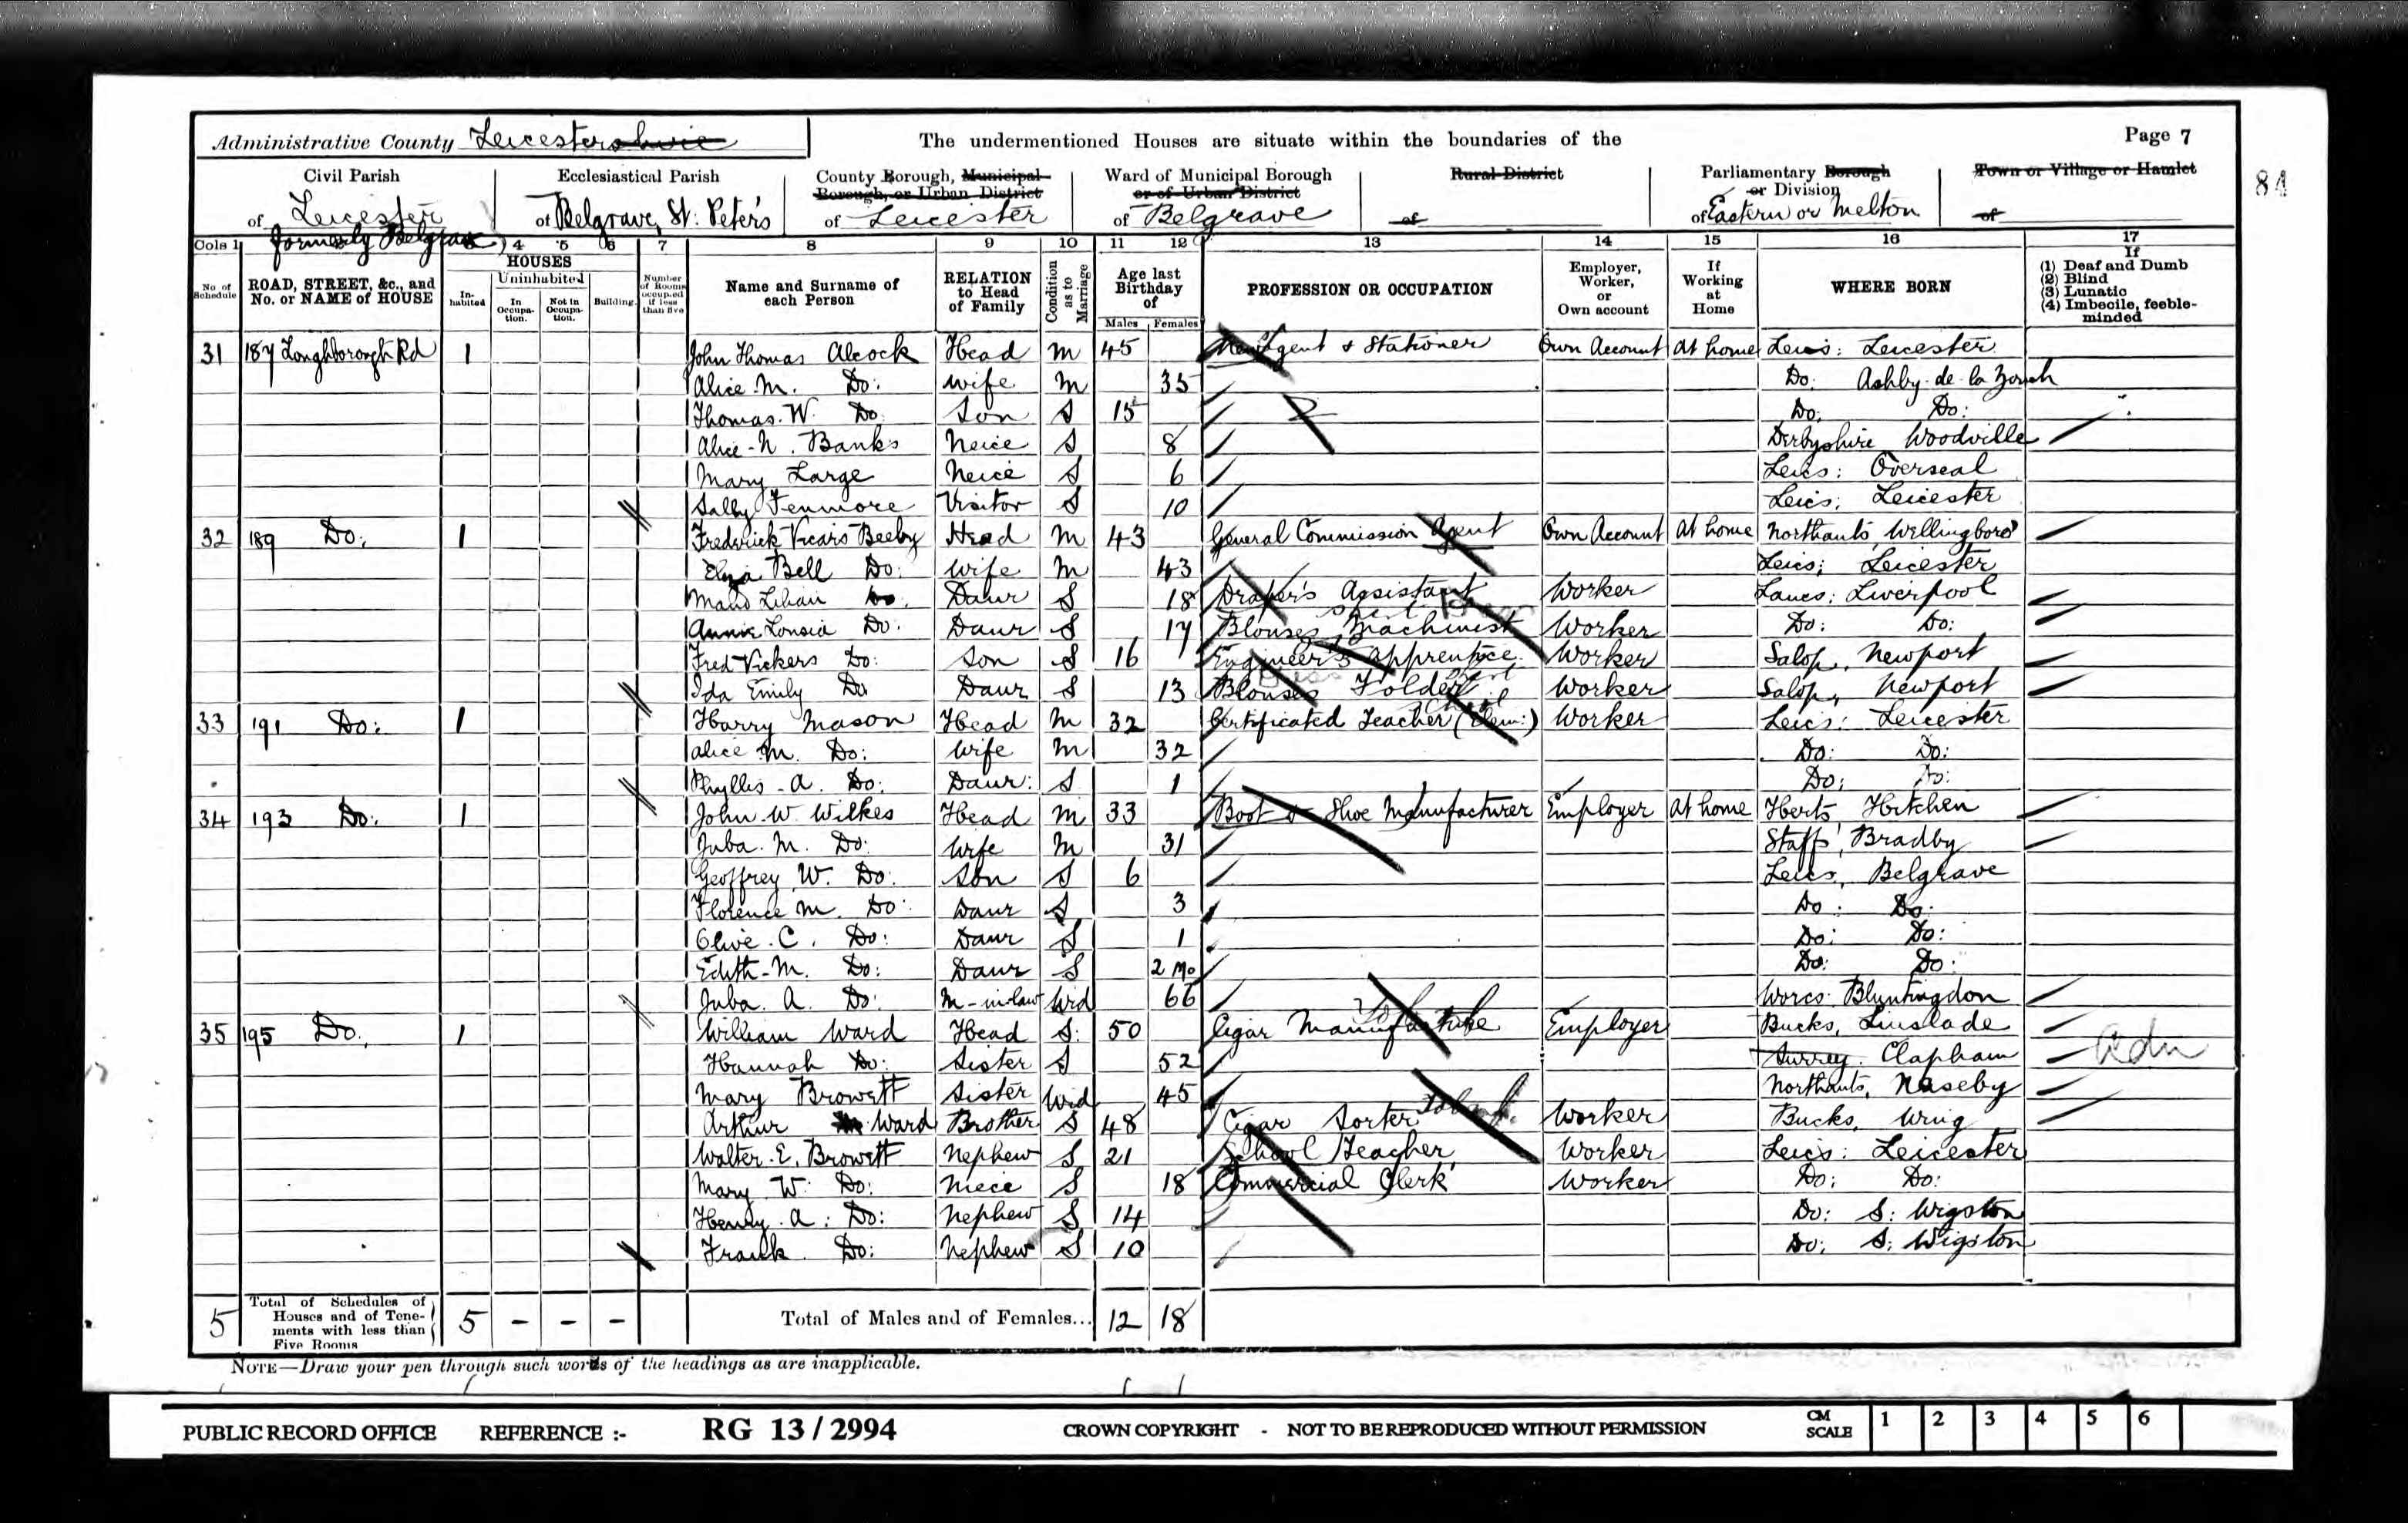 Administrative County Leicestershire
The undermentioned Houses are situate within the boundaries of the
Page 7
84
Civil Parish
of Leicester
formerly Belgrave
Ecclesiastical Parish
of Belgrave, St: Peter's
County Borough, Municipal Borough, or Urban District
of Leicester
Ward of Municipal Borough or of Urban District
of Belgrave
Rural District
of
Parliamentary Borough or Division
of Eastern or Melton
Town or Village or Hamlet
of
Cols 1 4 5 6 7 8 9 10 11 12 13 14 15 16 17
No. of Schedule
ROAD, STREET, &c., and No. or NAME of HOUSE
HOUSES
In-habited
Uninhabited
In Occupa-tion.
Not in Occupa-tion.
Building.
Number of Rooms occupied if less than five
Name and Surname of each Person
RELATION to Head of Family
Condition as to Marriage
Age last Birthday of
Males Females
PROFESSION OR OCCUPATION
Employer, Worker, or Own account
If Working at Home
WHERE BORN
If
(1) Deaf and Dumb
(2) Blind
(3) Lunatic
(4) Imbecile, feeble-minded
31 187 Loughborough Rd 1 John Thomas Alcock Head M 45 Agent & Stationer Own Account At home Leics: Leicester
Alice M. Do: Wife M 35 Do: Ashby-de-la Zouch
Thomas. W. Do Son S 15 Do: Do:
Alice-N. Banks Neice S 8 Derbyshire Woodville
Mary Large Neice S 6 Leics: Overseal
Sally Fenmore Visitor S 10 Leics: Leicester
32 189 Do: 1 Frederick Vicars Beeby Head M 43 General Commission Agent Own Account At home Northants, Wellingboro'
Eliza Bell Do: Wife M 43 Leics: Leicester
Maud Lilian Do. Daur S 18 Draper's Assistant Worker Lancs: Liverpool
Annie Louisa Do: Daur S 17 Blouses Machinist Worker Do: Do:
Fred Vickers Do: Son S 16 Engineer's apprentice Worker Salop, Newport
Ida Emily Do Daur S 13 Blouses Folder Worker Salop, Newport
33 191 Do: 1 Harry Mason Head M 32 Certificated Teacher (Elem:) Worker Leics: Leicester
Alice M. Do: Wife M 32 Do: Do:
Phyllis-A. Do: Daur: S 1 Do: Do:
34 193 Do: 1 John. W. Wilkes Head M 33 Boot & Shoe Manufacturer Employer At home Herts, Hitchen
Juba. M. Do: Wife M 31 Staffs, Bradby
Geoffrey W. Do: Son S 6 Leics, Belgrave
Florence M. Do: Daur S 3 Do: Do:
Olive. C. Do: Daur S 1 Do: Do:
Edith-M. Do: Daur S 2 Mo Do: Do:
Juba. A. Do: M-in-law Wid 66 Worcs: Bluntingdon
35 195 Do. 1 William Ward Head S: 50 Cigar Employer Bucks, Linslade
Hannah Do: Sister S 52 Surrey. Clapham
Mary Browett Sister Wid 45 Northants, Naseby
Arthur Ward Brother S 48 Cigar Sorter Worker Bucks, Wing
Walter. E. Browett Nephew S 21 School Teacher Worker Leics: Leicester
Mary W: Do: Niece S 18 Commercial Clerk Worker Do: Do:
Henry. A: Do: Nephew S 14 Do: S: Wigston
Frank Do: Nephew S 10 Do: S: Wigston
5 Total of Schedules of Houses and of Tene-ments with less than Five Rooms 5 - - - Total of Males and of Females... 12 18
NOTE—Draw your pen through such words of the headings as are inapplicable.
PUBLIC RECORD OFFICE REFERENCE :- RG 13 / 2994 CROWN COPYRIGHT - NOT TO BE REPRODUCED WITHOUT PERMISSION CM SCALE 1 2 3 4 5 6